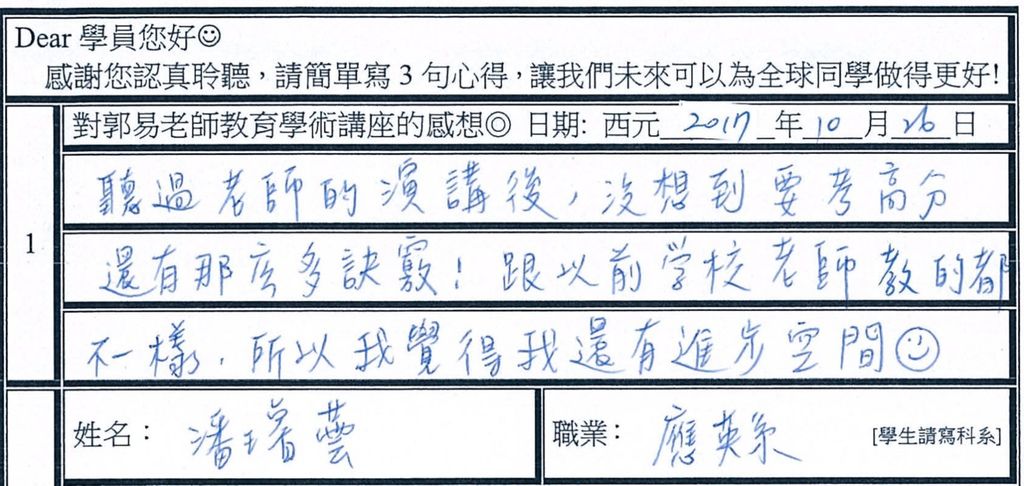 Dear 學員您好☺
感謝您認真聆聽，請簡單寫 3 句心得，讓我們未來可以為全球同學做得更好!
1
對郭易老師教育學術講座的感想◎ 日期: 西元 2017 年 10 月 26 日
聽過老師的演講後，沒想到要考高分
還有那広多訣竅！跟以前学校老師教的都
不一樣，所以我覺得我還有進步空間☺
姓名： 潘瑃蕓
職業： 應英系 [學生請寫科系]